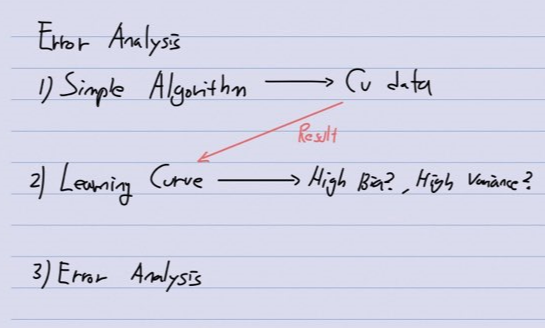 Error Analysis
1) Simple Algorithm → Cv data
Result
2) Learning Curve → High Bias?, High Variance?
3) Error Analysis